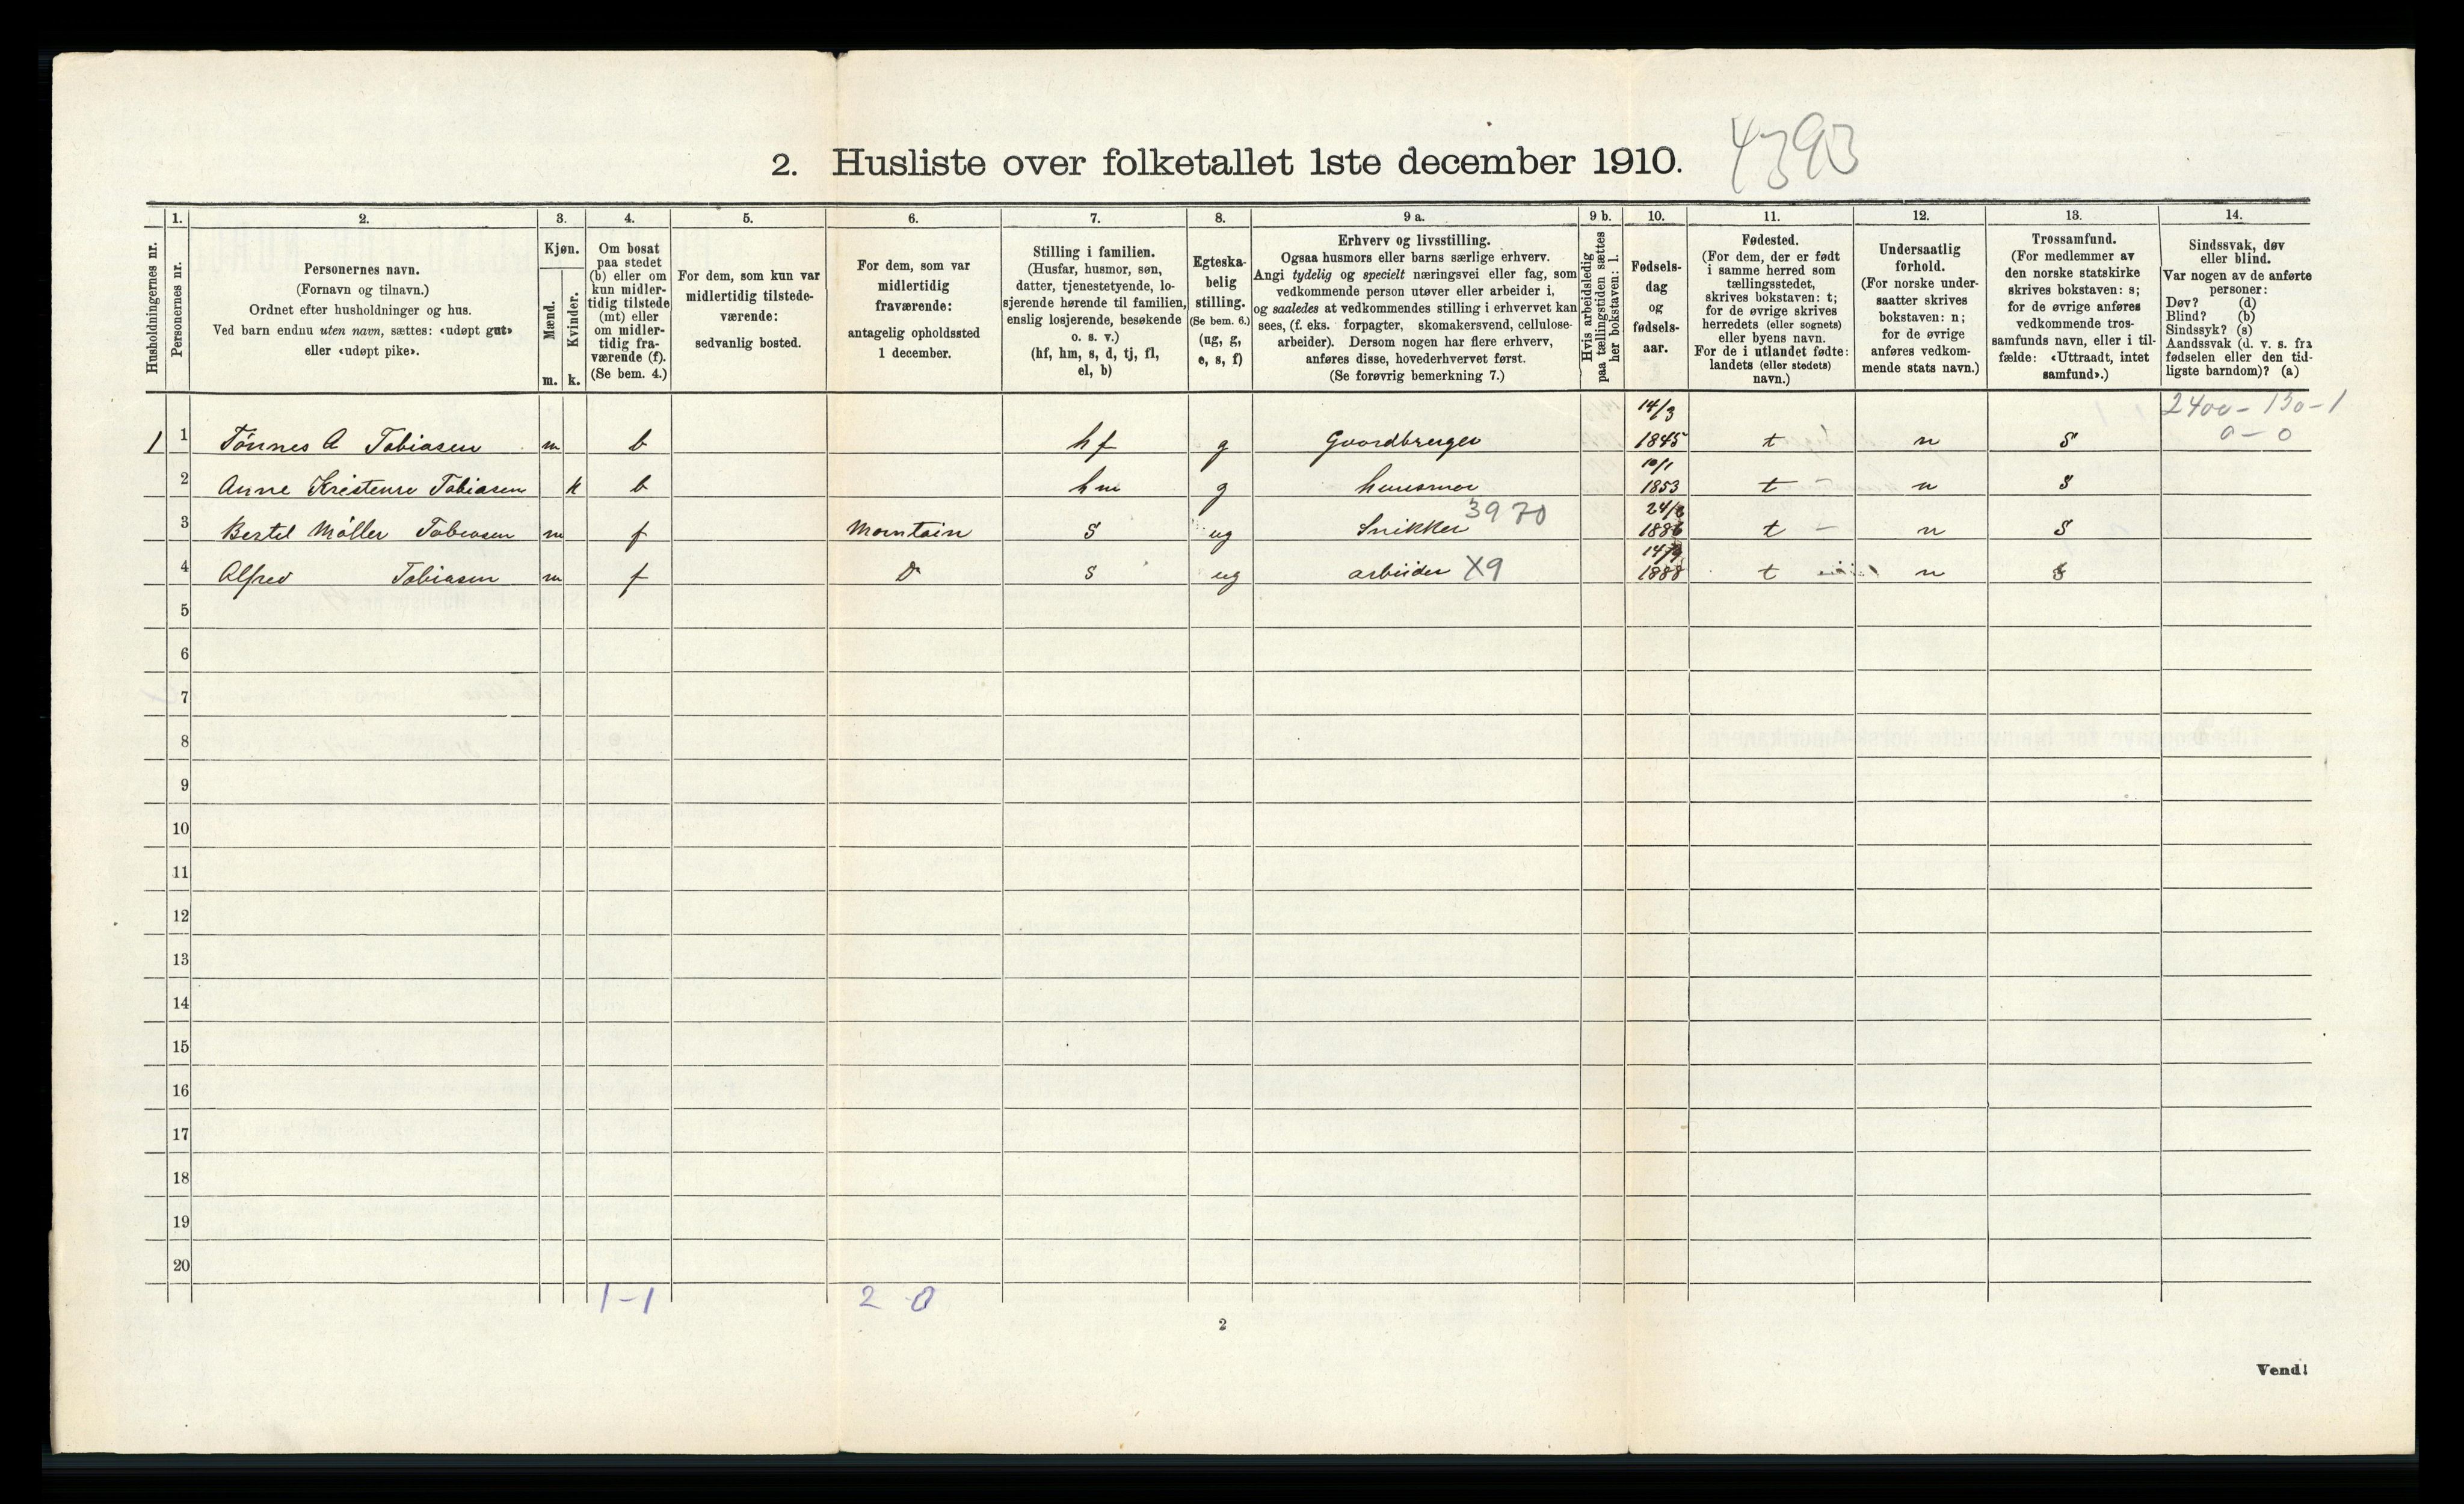 2. Husliste over folketallet 1ste december 1910. 4393
Husholdningernes nr.
1.
Personernes nr.
2.
Personernes navn.
(Fornavn og tilnavn.)
Ordnet efter husholdninger og hus.
Ved barn endnu uten navn, sættes: «udøpt gut»
eller «udøpt pike».
3.
Kjøn.
Mænd.
Kvinder.
m. k.
4.
Om bosat
paa stedet
(b) eller om
kun midler-
tidig tilstede
(mt) eller
om midler-
tidig fra-
værende (f).
(Se bem. 4.)
5.
For dem, som kun var
midlertidig tilstede-
værende:
sedvanlig bosted.
6.
For dem, som var
midlertidig
fraværende:
antagelig opholdssted
1 december.
7.
Stilling i familien.
(Husfar, husmor, søn,
datter, tjenestetyende, lo-
sjerende hørende til familien,
enslig losjerende, besøkende
o. s. v.)
(hf, hm, s, d, tj, fl,
el, b)
8.
Egteska-
belig
stilling.
(Se bem. 6.)
(ug, g,
e, s, f)
9 a.
Erhverv og livsstilling.
Ogsaa husmors eller barns særlige erhverv.
Angi tydelig og specielt næringsvei eller fag, som
vedkommende person utøver eller arbeider i,
og saaledes at vedkommendes stilling i erhvervet kan
sees, (f. eks. forpagter, skomakersvend, cellulose-
arbeider). Dersom nogen har flere erhverv,
anføres disse, hovederhvervet først.
(Se forøvrig bemerkning 7.)
9 b.
Hvis arbeidsledig
paa tællingstiden sættes
her bokstaven: l.
10.
Fødsels-
dag
og
fødsels-
aar.
11.
Fødested.
(For dem, der er født
i samme herred som
tællingsstedet,
skrives bokstaven: t;
for de øvrige skrives
herredets (eller sognets)
eller byens navn.
For de i utlandet fødte:
landets (eller stedets)
navn.)
12.
Undersaatlig
forhold.
(For norske under-
saatter skrives
bokstaven: n;
for de øvrige
anføres vedkom-
mende stats navn.)
13.
Trossamfund.
(For medlemmer av
den norske statskirke
skrives bokstaven: s;
for de øvrige anføres
vedkommende tros-
samfunds navn, eller i til-
fælde: «Uttraadt, intet
samfund».)
14.
Sindssvak, døv
eller blind.
Var nogen av de anførte
personer:
Døv? (d)
Blind? (b)
Sindssyk? (s)
Aandssvak (d. v. s. fra
fødselen eller den tid-
ligste barndom)? (a)
2400 - 130 - 1
0 - 0
1 1 Tønnes A Tobiasen m b hf g Gaardbruger 14/3 1845 t n S
2 Anne Kristense Tobiasen k b hm g huusmor 10/1 1853 t n S
3 Bertel Møller Tobiasen m f Mointain S ug Snikker 3970 1886 t - n S
4 Alfred Tobiasen m f Do S ug arbeider X9 1888 t n S
5
6
7
8
9
10
11
12
13
14
15
16
17
18
19
20
1 - 1 2 0
2
Vend!